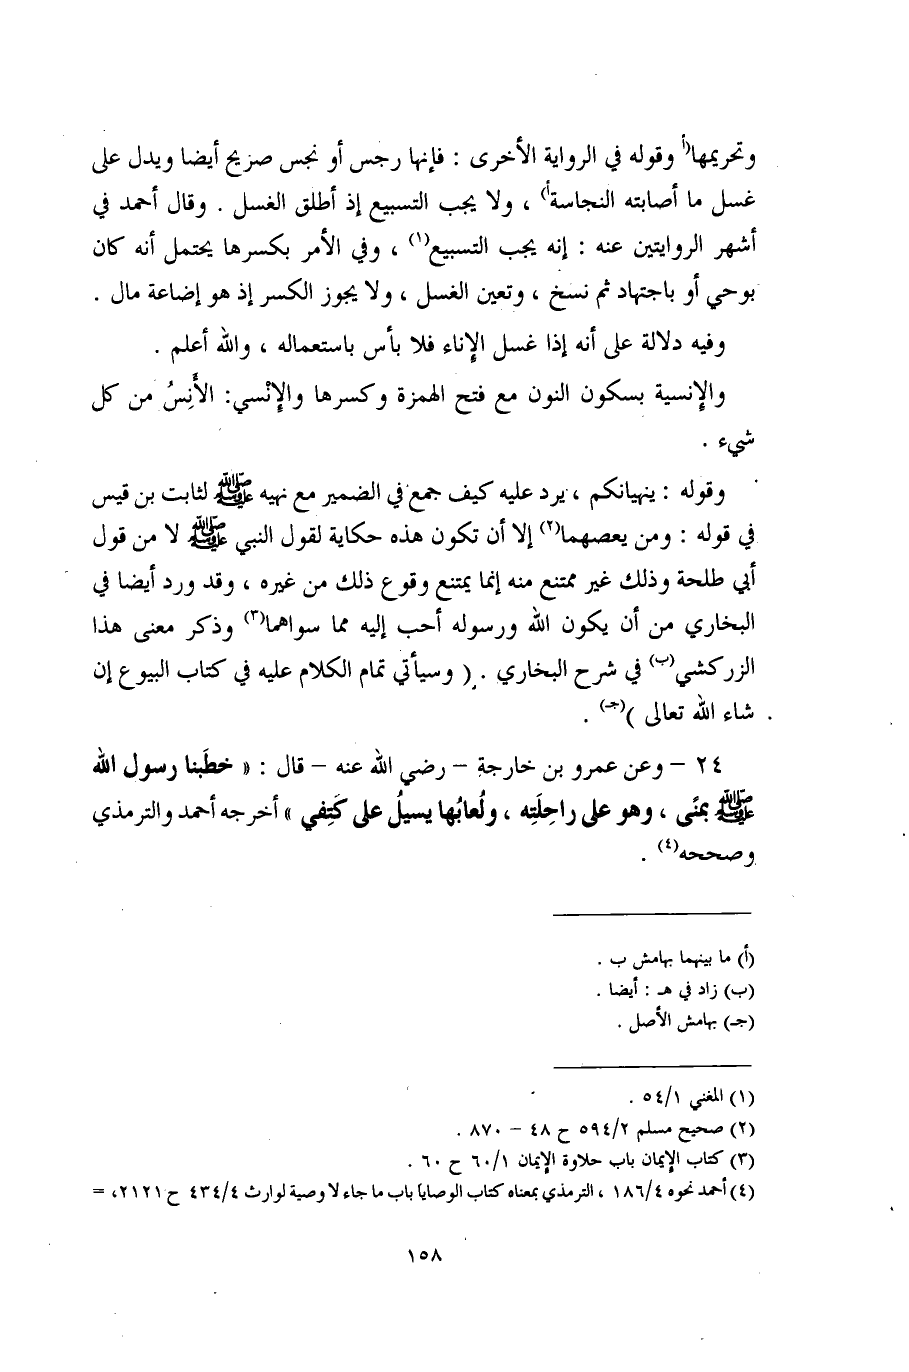 وتحريمها(أ وقوله في الرواية الأخرى : فإنها رجس أو نجس صريح أيضا ويدل على
غسل ما أصابته النجاسةأ) ، ولا يجب التسبيع إذ أطلق الغسل . وقال أحمد في
أشهر الروايتين عنه : إنه يجب التسبيع(١) ، وفي الأمر بكسرها يحتمل أنه كان
بوحي أو باجتهاد ثم نسخ ، وتعين الغسل ، ولا يجوز الكسر إذ هو إضاعة مال .
وفيه دلالة على أنه إذا غسل الإناء فلا بأس باستعماله ، والله أعلم .
والإنسية بسكون النون مع فتح الهمزة وكسرها والإنْسي: الأَنِسُ من كل
شيء .
وقوله : ينهيانكم ، يرد عليه كيف جمع في الضمير مع نهيه ﷺ لثابت بن قيس
في قوله : ومن يعصهما(٢) إلا أن تكون هذه حكاية لقول النبي ﷺ لا من قول
أبي طلحة وذلك غير ممتنع منه إنما يمتنع وقوع ذلك من غيره ، وقد ورد أيضا في
البخاري من أن يكون الله ورسوله أحب إليه مما سواهما(٣) وذكر معنى هذا
الزركشي(ب) في شرح البخاري . ( وسيأتي تمام الكلام عليه في كتاب البيوع إن
شاء الله تعالى )(جـ) .
٢٤ – وعن عمرو بن خارجة – رضي الله عنه – قال : « خطَبنا رسول الله
ﷺ بمنًى ، وهو على راحِلَتِه ، ولُعابُها يسيلُ على كَتِفي » أخرجه أحمد والترمذي
وصححه(٤) .
(أ) ما بينهما بهامش ب .
(ب) زاد في هـ : أيضا .
(جـ) بهامش الأصل .
(١) المغني ٥٤/١ .
(٢) صحيح مسلم ٥٩٤/٢ ح ٤٨ – ٨٧٠ .
(٣) كتاب الإيمان باب حلاوة الإيمان ٦٠/١ ح ٦٠ .
(٤) أحمد نحوه ١٨٦/٤ ، الترمذي بمعناه كتاب الوصايا باب ما جاء لا وصية لوارث ٤٣٤/٤ ح ٢١٢١، =
١٥٨